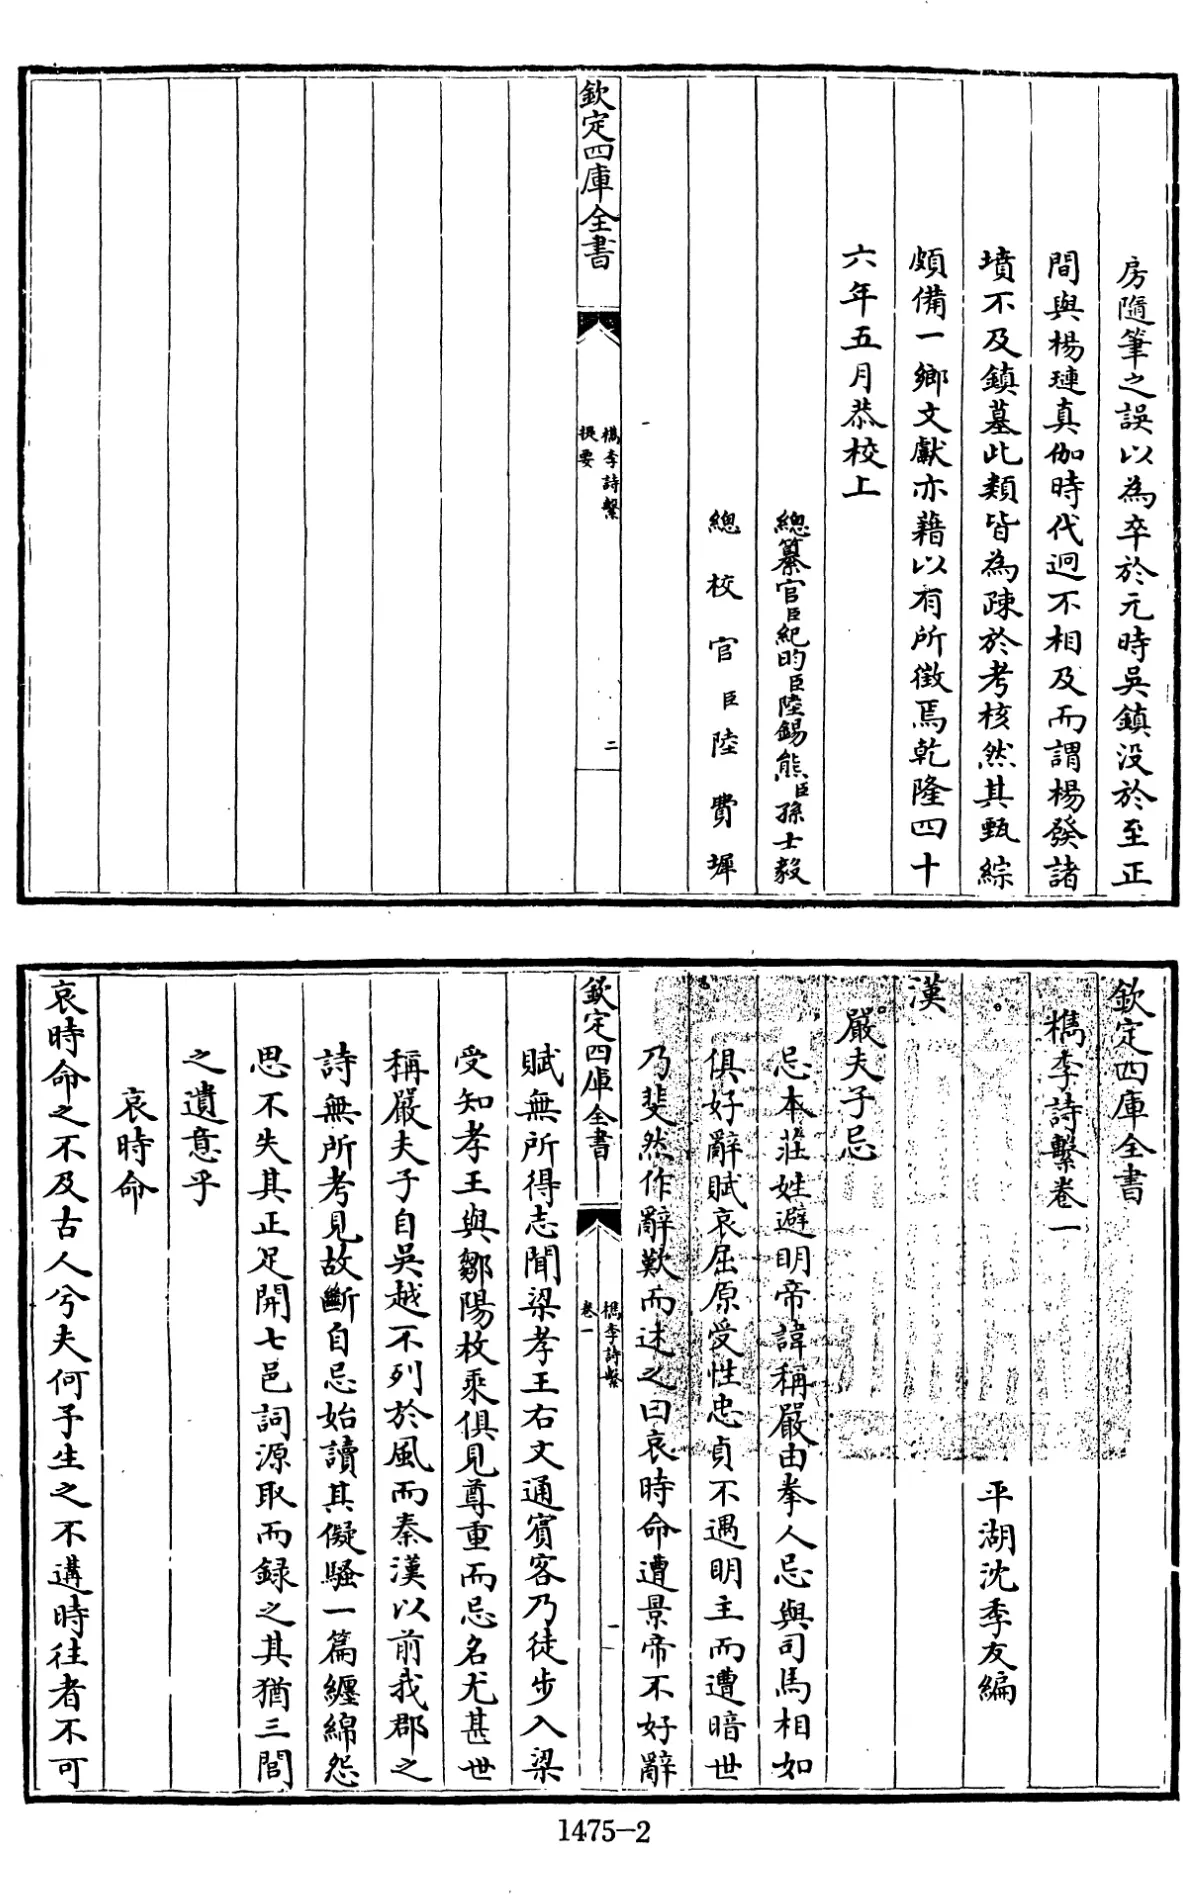 房隨筆之誤以為卒於元時吳鎮没於至正
間與楊璉真伽時代迥不相及而謂楊發諸
墳不及鎮墓此類皆為疎於考核然其甄綜
頗備一鄉文獻亦藉以有所徵焉乾隆四十
六年五月恭校上
總纂官臣紀昀臣陸錫熊臣孫士毅
總校官臣陸費墀
欽定四庫全書
檇李詩繫
提要
二
欽定四庫全書
檇李詩繫卷一
平湖沈季友編
漢
嚴夫子忌
忌本莊姓避明帝諱稱嚴由拳人忌與司馬相如
俱好辭賦哀屈原受性忠貞不遇明主而遭暗世
乃斐然作辭歎而述之曰哀時命遭景帝不好辭
欽定四庫全書
檇李詩繫
卷一
一
賦無所得志聞梁孝王右文通賓客乃徒步入梁
受知孝王與鄒陽枚乘俱見尊重而忌名尤甚世
稱嚴夫子自吳越不列於風而秦漢以前我郡之
詩無所考見故斷自忌始讀其儗騷一篇纏綿怨
思不失其正足開七邑詞源取而録之其猶三閭
之遺意乎
哀時命
哀時命之不及古人兮夫何予生之不遘時往者不可
1475-2